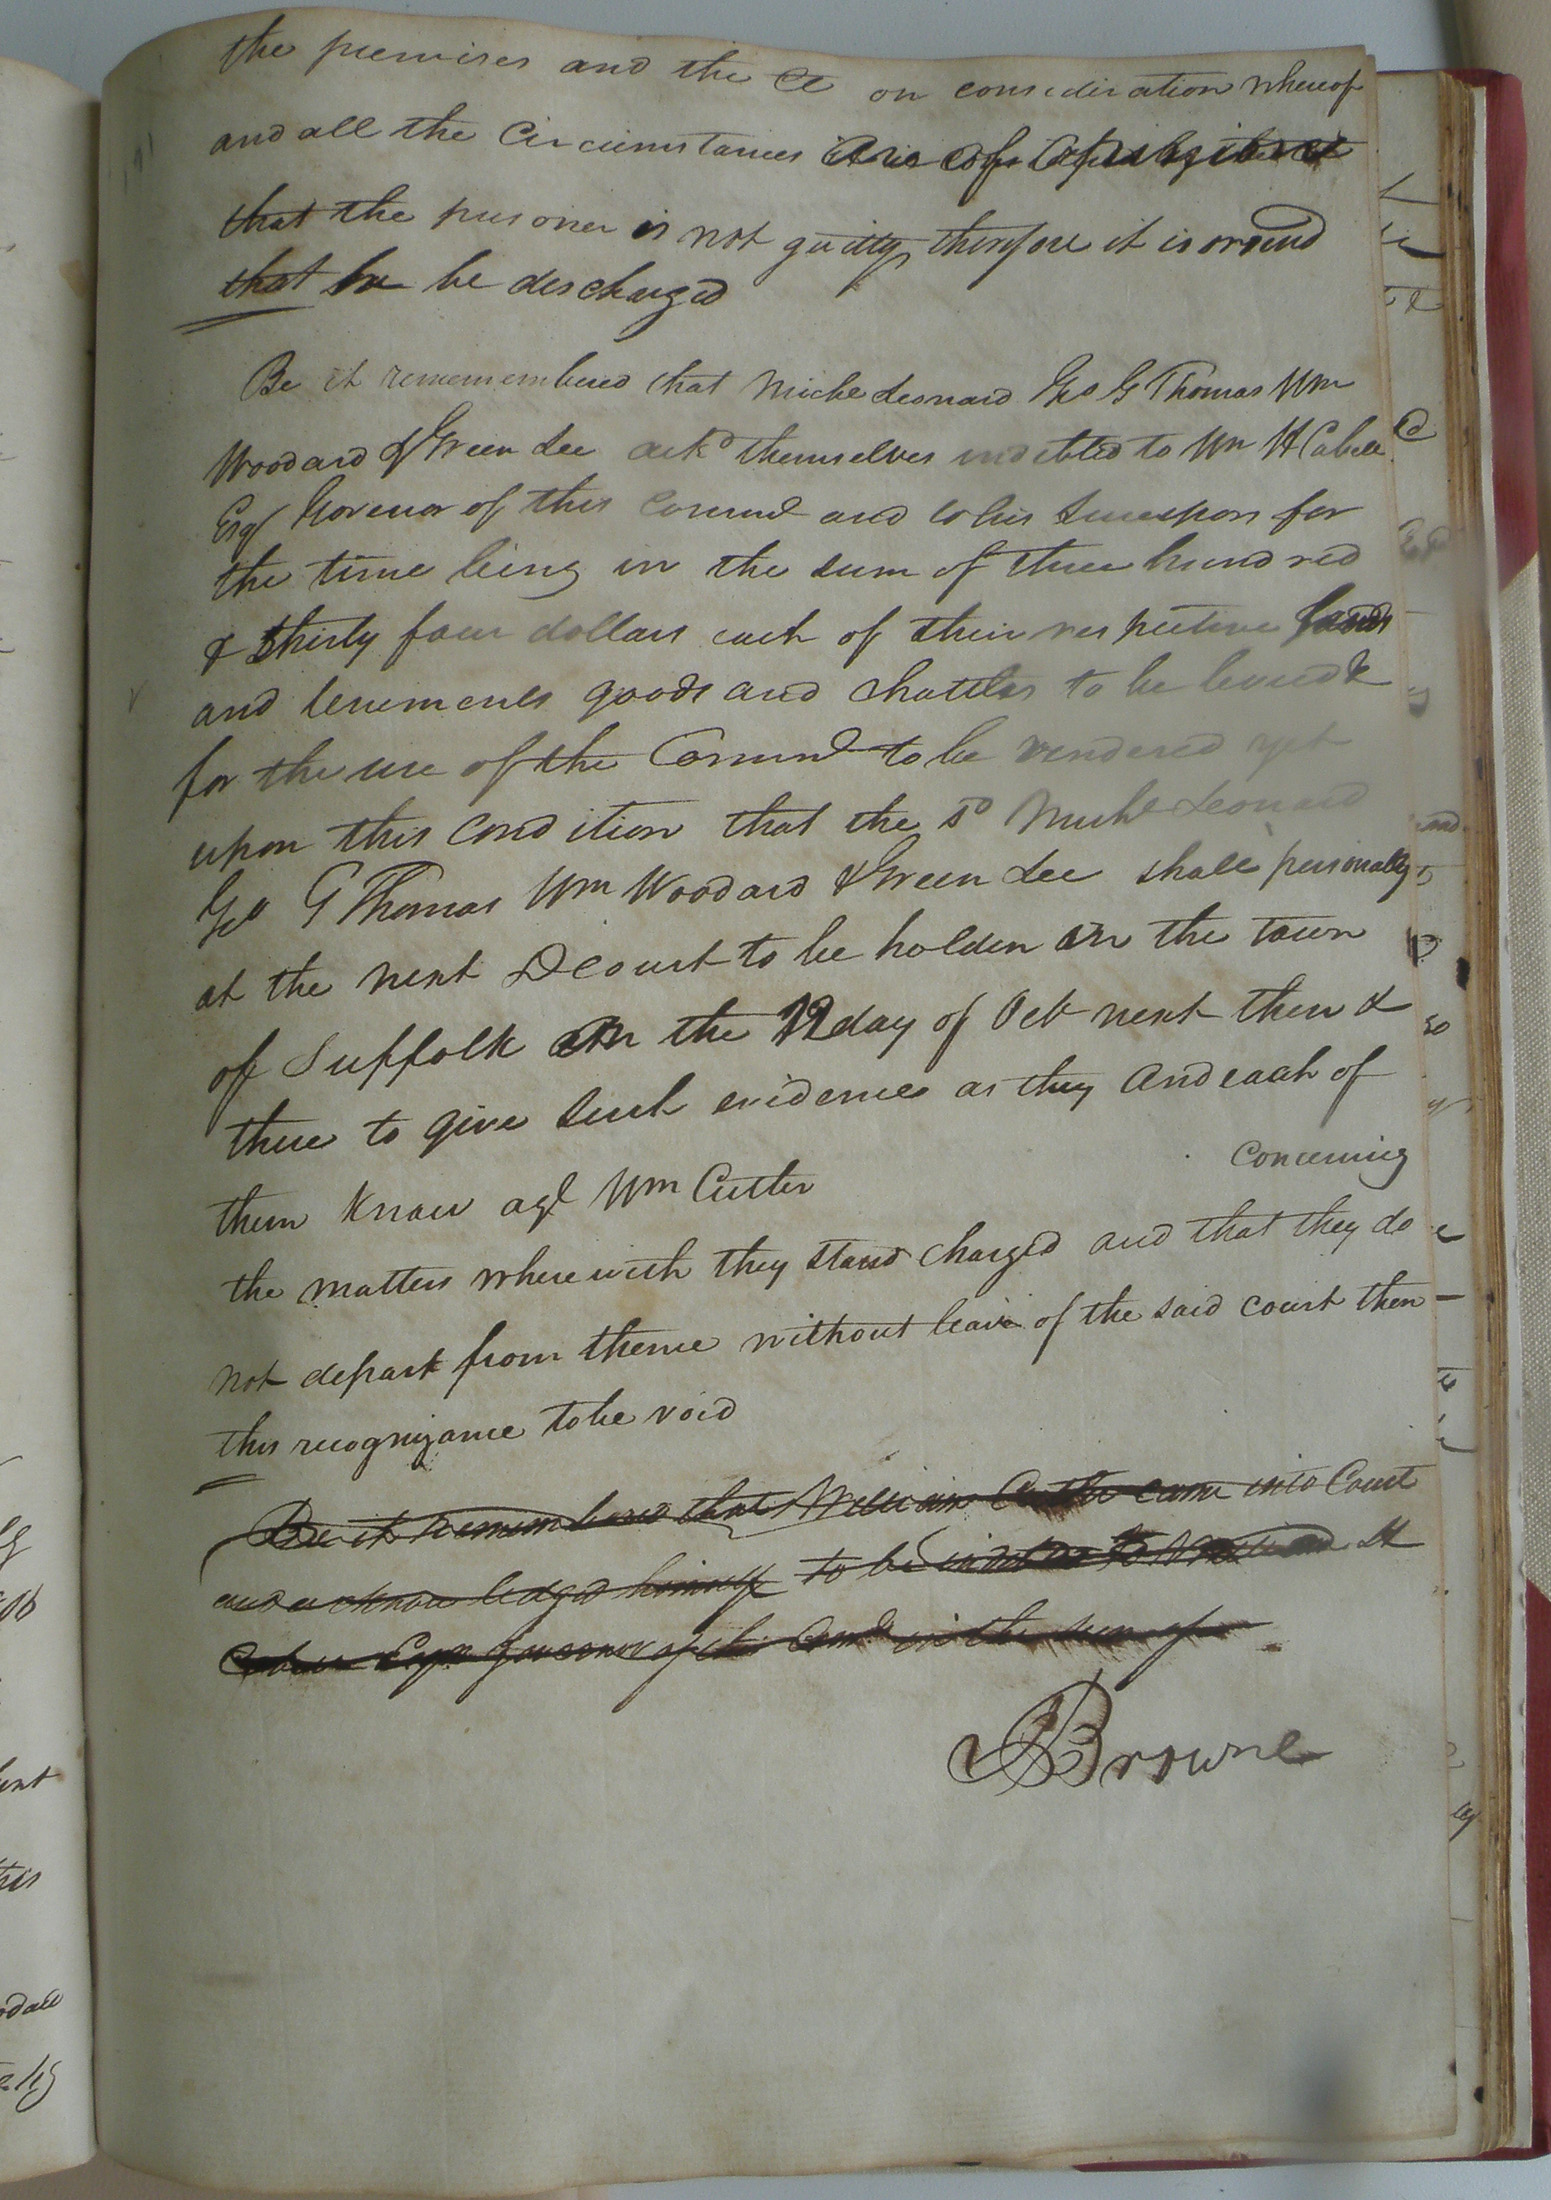 the premises and the Ct on consideration whereof
and all the Circumstances it is of opinion
that the prisoner is not guilty, therefore it is ord
that he be discharged
Be it rememembered that Miche Leonard Geo G Thomas Wm
Woodard & Green Lee ackd themselves indebted to Wm H Cabell
Esqr Govenor of this Commd and to his Successors for
the time being in the sum of three hundred
& thirty four dollars each of their respective lands
and tenements goods and chattles to be levied &
for the use of the Commd to be rendered yet
upon this condition that the sd Michl Leonard
Geo G Thomas Wm Woodard & Green Lee shall personally
at the next D Court to be holden in the town
of Suffolk on the 12 day of Oct next then &
there to give such evidence as they and each of
them know agt Wm Cutler
concerning
the matters wherewith they stand charged and that they do
not depart from thence without leave of the said court then
this recognizance to be void
Be it remembered that William Cutler came into Court
and acknowledged himself to be indebted to William H
Cabell Esqr governor of the Comd in the sum of
Browne